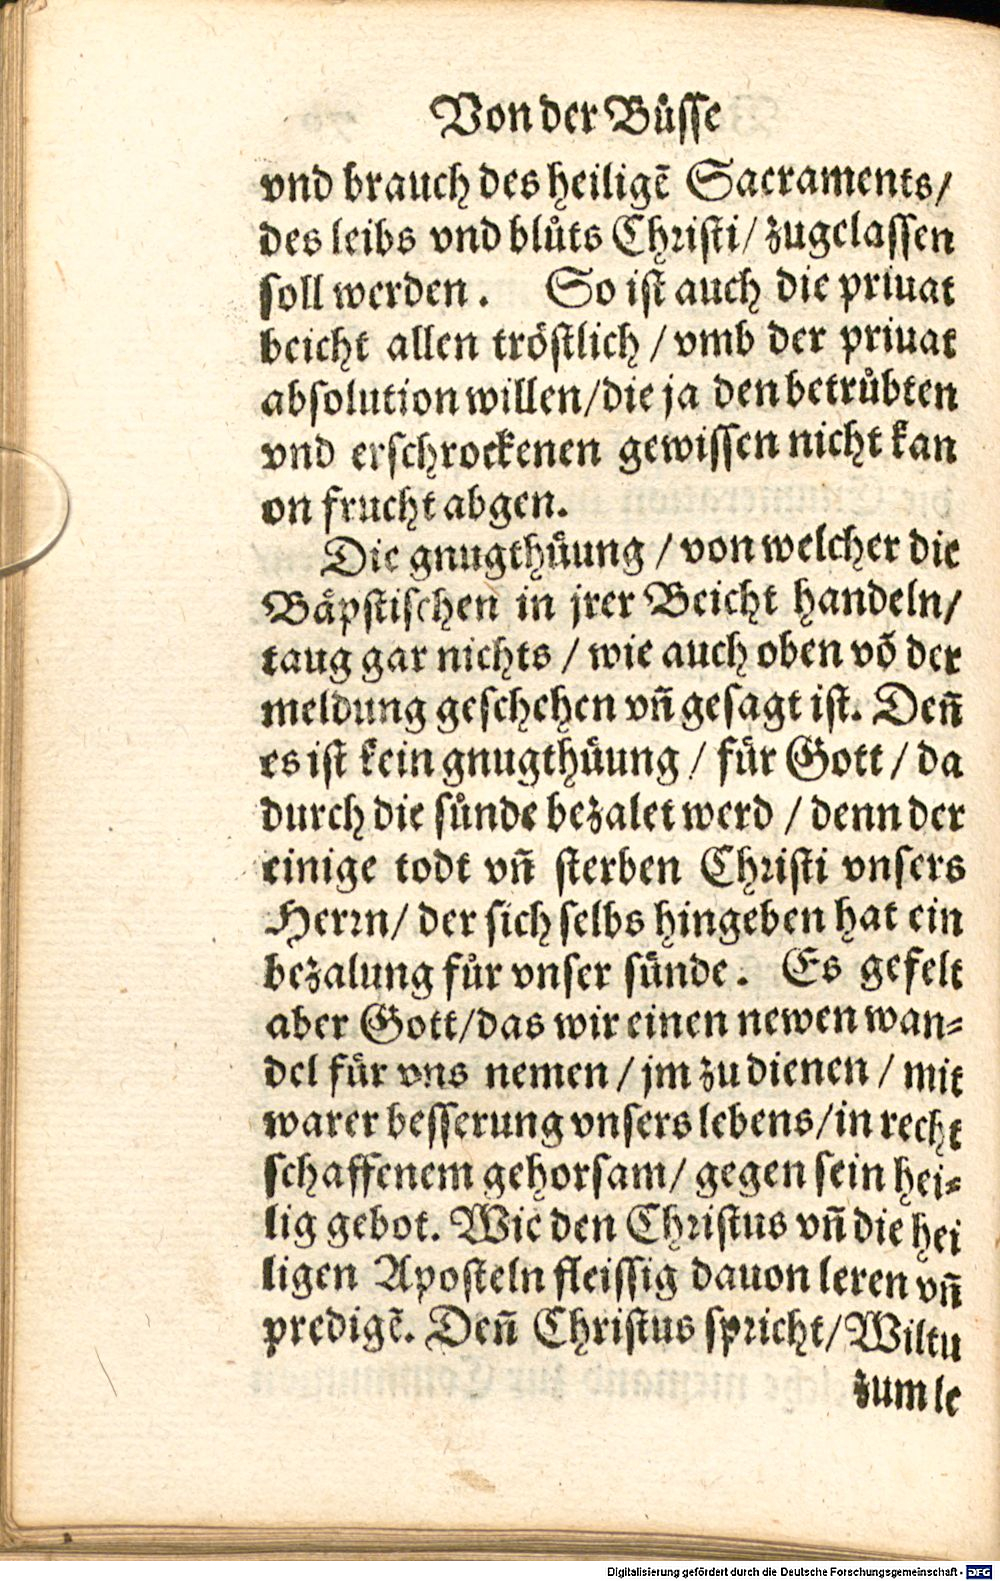 Von der Büsse
vnd brauch des heiligẽ Sacraments/
des leibs vnd blůts Christi/ zugelassen
soll werden. So ist auch die priuat
beicht allen tröstlich / vmb der priuat
absolution willen/die ja den betrůbten
vnd erschrockenen gewissen nicht kan
on frucht abgen.
Die gnugthüung / von welcher die
Bäpstischen in jrer Beicht handeln/
taug gar nichts / wie auch oben võ der
meldung geschehen vñ gesagt ist. Deñ
es ist kein gnugthüung / für Gott / da
durch die sůnde bezalet werd / denn der
einige todt vñ sterben Christi vnsers
Herrn/ der sich selbs hingeben hat ein
bezalung fůr vnser sünde. Es gefelt
aber Gott/das wir einen newen wan-
del für vns nemen / jm zu dienen / mit
warer besserung vnsers lebens/in recht
schaffenem gehorsam/ gegen sein hei-
lig gebot. Wie den Christus vñ die hei
ligen Aposteln fleissig dauon leren vñ
predigẽ. Deñ Christus spricht/Wiltu
zum le
Digitalisierung gefördert durch die Deutsche Forschungsgemeinschaft - DFG